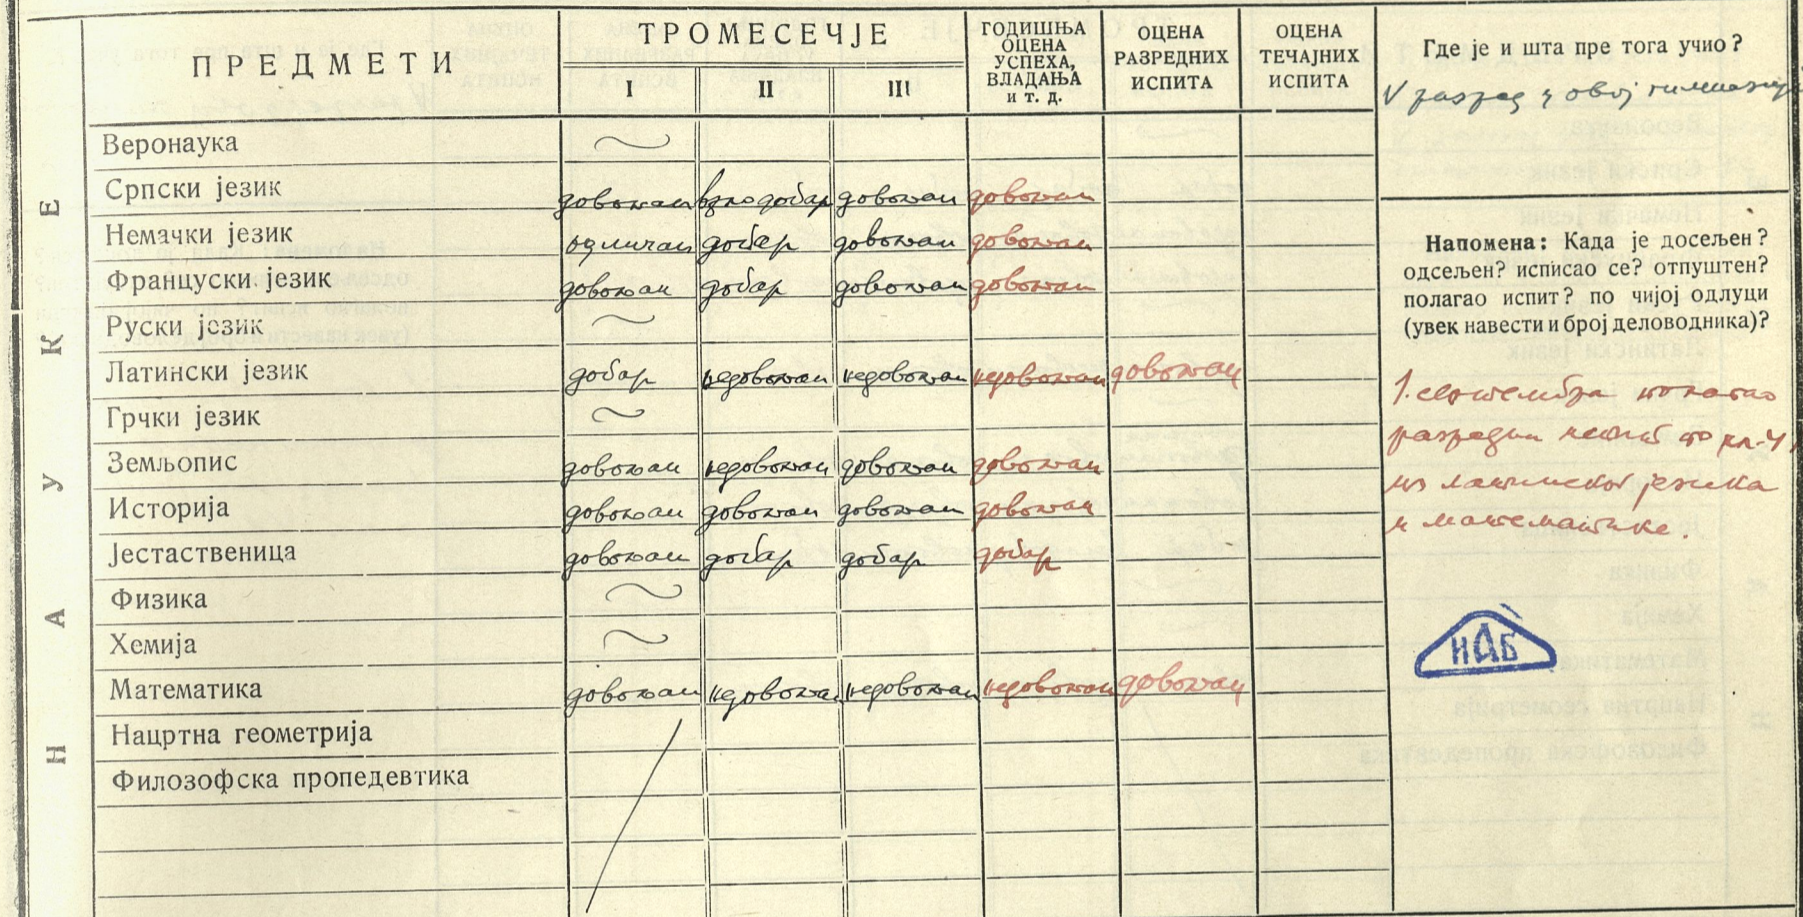 ПРЕДМЕТИ
ТРОМЕСЕЧЈЕ
I II III
ГОДИШЊА
ОЦЕНА
УСПЕХА,
ВЛАДАЊА
И Т. Д.
ОЦЕНА
РАЗРЕДНИХ
ИСПИТА
ОЦЕНА
ТЕЧАЈНИХ
ИСПИТА
Где је и шта пре тога учио?
V разред у овој гимназији
НАУКЕ
Веронаука
Српски језик довољан врло добар довољан довољан
Немачки језик одличан добар довољан довољан
Француски језик довољан добар довољан довољан
Руски језик
Латински језик добар недовољан недовољан недовољан довољан
Грчки језик
Земљопис довољан недовољан довољан довољан
Историја довољан довољан довољан довољан
Јестаственица довољан добар добар добар
Физика
Хемија
Математика довољан недовољан недовољан недовољан довољан
Нацртна геометрија
Филозофска пропедевтика
Напомена: Када је досељен?
одсељен? исписао се? отпуштен?
полагао испит? по чијој одлуци
(увек навести и број деловодника)?
1. септембра полагао
разредни испит по
из латинског језика
и математике.
НАБ